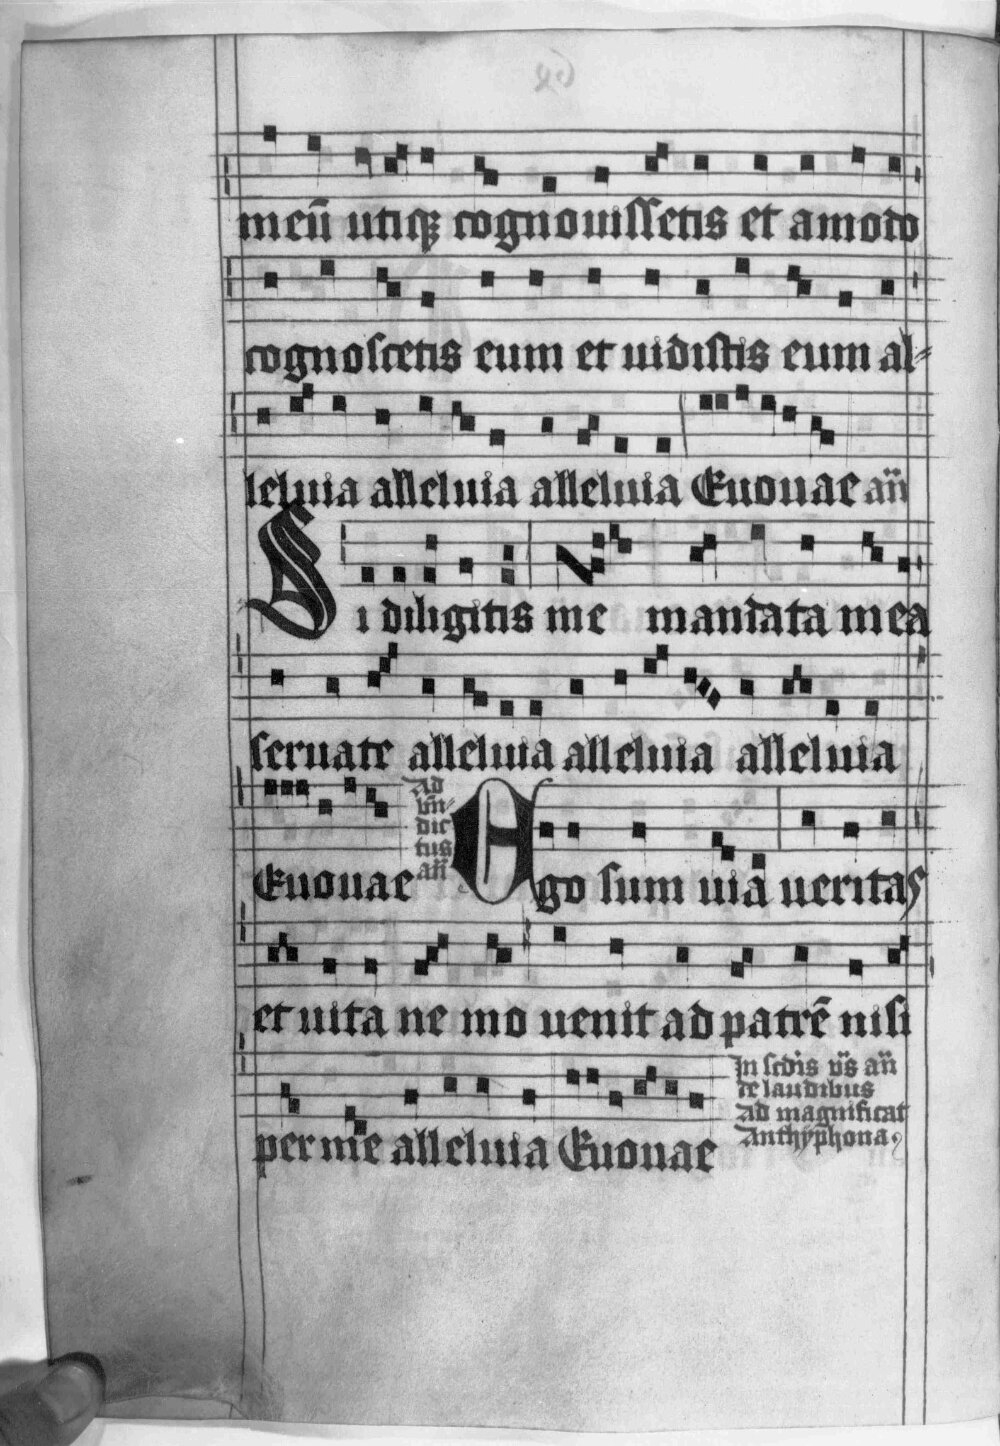 meū utiqꝫ cognouissetis et amodo
cognoscetis eum et uidistis eum al⸗
leluia alleluia alleluia Euouae añ
Si diligitis me mandata mea
seruate alleluia alleluia alleluia
Euouae
Ad
bn̄⸗
dic⸗
tus
añ
Ego sum uia ueritas
et uita nemo uenit ad patrē nisi
per me alleluia Euouae
In scd̄is ūs añ
de laudibus
Ad magnificat
Anthyphona